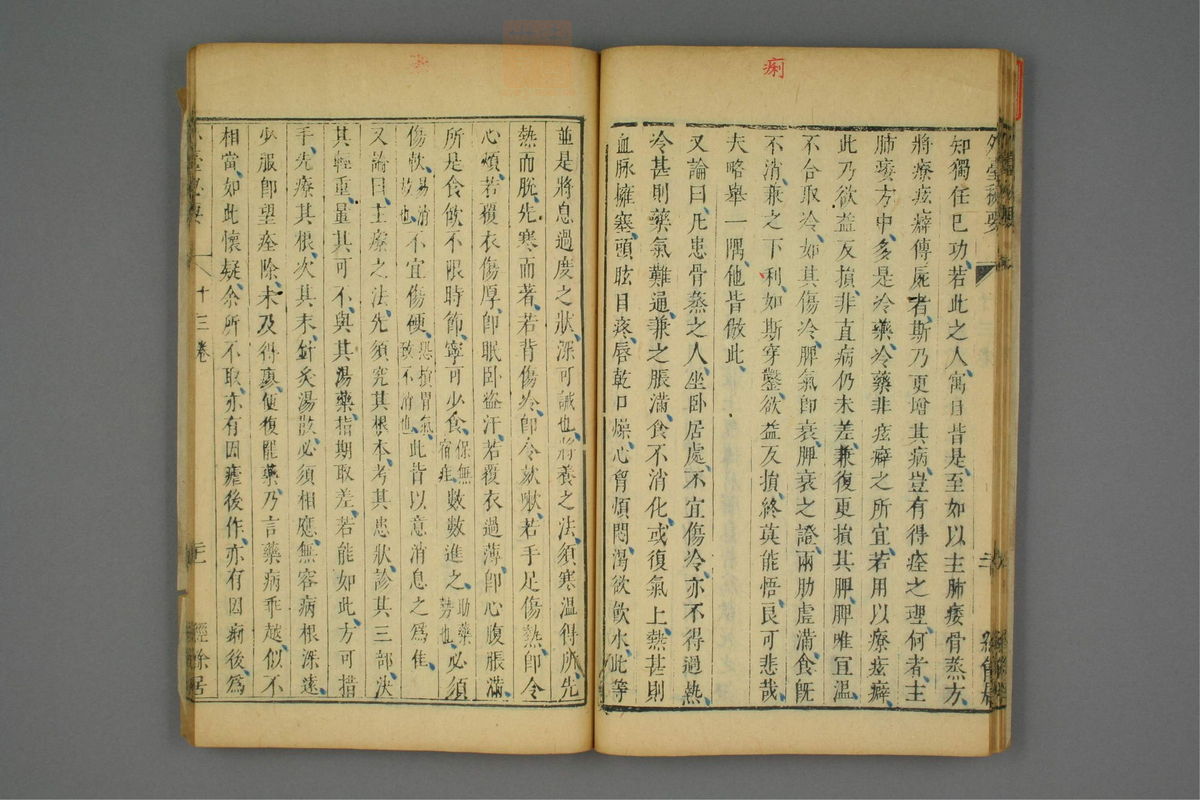 痢
知獨任已功若此之人寓目皆是至如以主肺痿骨蒸方
將療痃癖傳屍者斯乃更增其病豈有得痊之理何者主
肺痿方中多是冷藥冷藥非痃癖之所宜若用以療痃癖
此乃欲益反損非直病仍未差兼復更損其脾脾唯宜溫
不合取冷如其傷冷脾氣即衰脾衰之證兩肋虛滿食旣
不消兼之下利如斯穿鑿欲益反損終莫能悟良可悲哉
夫略舉一隅他皆倣此
又論曰凡患骨蒸之人坐卧居處不宜傷冷亦不得過熱
冷甚則藥氣難通兼之脹滿食不消化或復氣上熱甚則
血脉擁塞頭眩目疼唇乾口燥心胷煩悶渴欲飲水此等
並是將息過度之狀深可誡也將養之法須寒溫得所先
熱而脫先寒而著若背傷冷即令欬嗽若手足傷熱即令
心煩若覆衣傷厚即眠卧盜汗若覆衣過薄即心腹脹滿
所是食飲不限時節寧可少食保無宿疰數數進之助藥勢也必須
傷軟易消故也不宜傷硬恐損胃氣致不消也此皆以意消息之為佳
又論曰主療之法先須究其根本考其患狀診其三部決
其輕重量其可不與其湯藥指期取差若能如此方可措
手先療其根次其末針灸湯散必須相應無容病根深遠
少服即望痊除未及得愈便復罷藥乃言藥病乖越似不
相當如此懷疑余所不取亦有因瘧後作亦有因痢後為
十三卷
經餘居